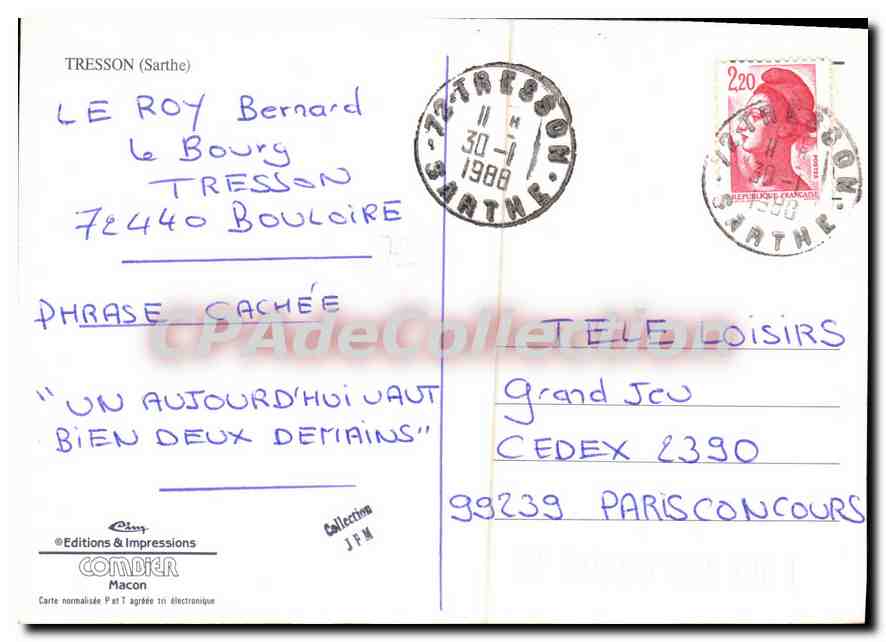 TRESSON (Sarthe)
LE ROY Bernard
le Bourg
TRESSON
72440 BOULOIRE
PHRASE CACHÉE
"UN AUJOURD'HUI VAUT
BIEN DEUX DEMAINS"
Cim
©Editions & Impressions
COMBIER
Macon
Carte normalisée P et T agréée tri électronique
Collection
J P M
72-TRESSON
11 H
30-1
1988
SARTHE
2,20
POSTES
REPUBLIQUE FRANÇAISE
72-TRESSON
11
30-1
1988
SARTHE
CPAdeCollection
TELE LOISIRS
Grand Jeu
CEDEX 2390
99239 PARIS CONCOURS